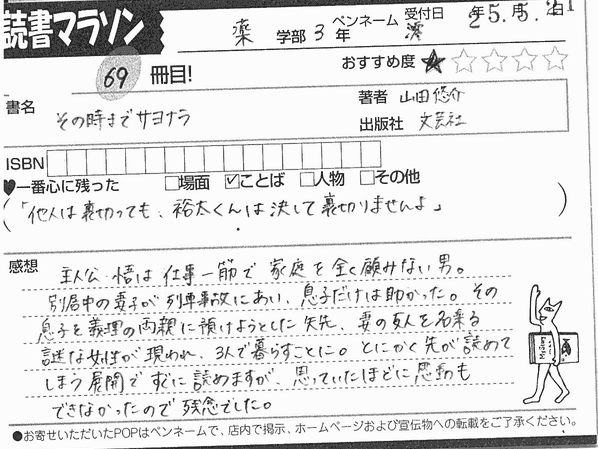 読書マラソン
薬 学部 3 年 ペンネーム 澪 受付日 25.5.21
69 冊目!
おすすめ度 ★☆☆☆☆
書名 その時までサヨナラ
著者 山田悠介
出版社 文芸社
ISBN
♥一番心に残った □場面 ☑ことば □人物 □その他
(「他人は裏切っても、裕太くんは決して裏切りませんよ」)
感想
主人公 悟は仕事一筋で家庭を全く顧みない男。
別居中の妻子が列車事故にあい、息子だけは助かった。その
息子を義理の両親に預けようとした矢先、妻の友人を名乗る
謎な女性が現われ、3人で暮らすことに。とにかく先が読めて
しまう展開ですぐに読めますが、思っていたほどに感動も
できなかったので残念でした。
●お寄せいただいたPOPはペンネームで、店内で掲示、ホームページおよび宣伝物への転載をご了承ください。